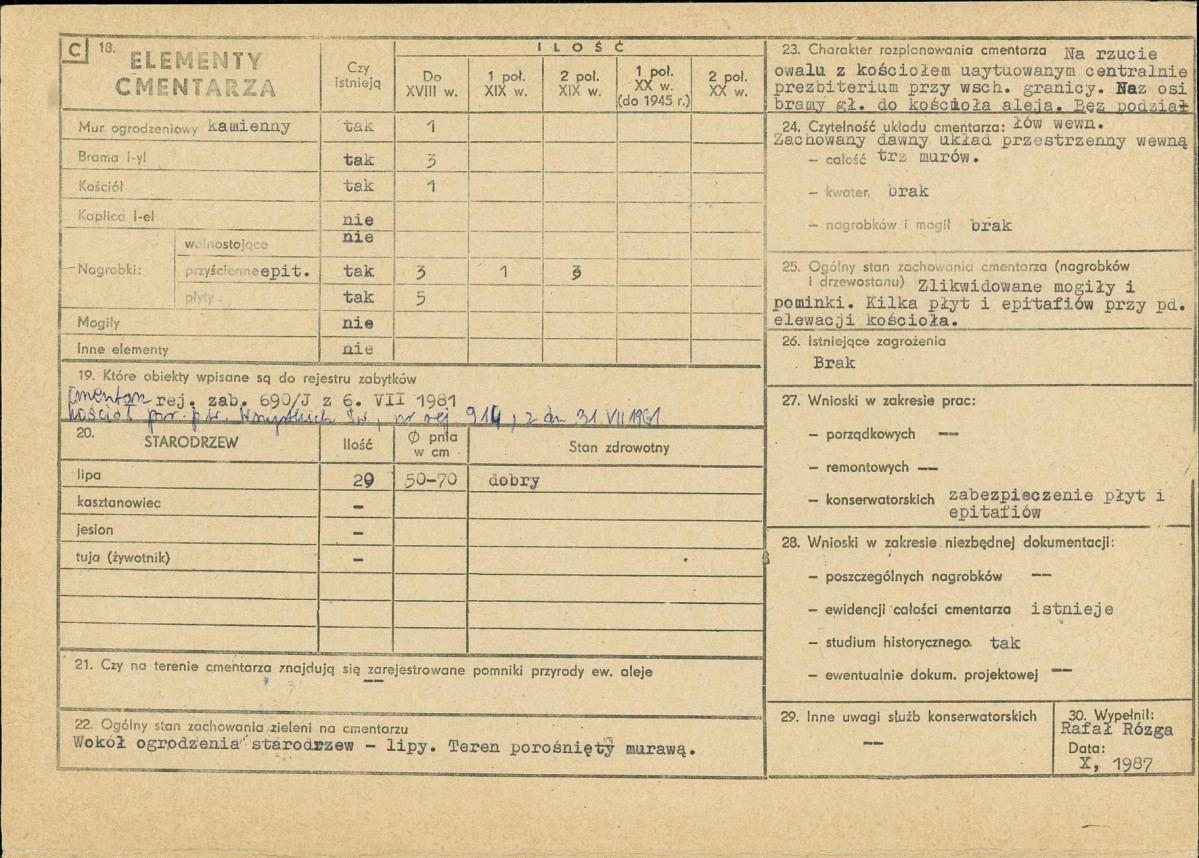 C 18. ELEMENTY CMENTARZA
Czy istnieją
ILOŚĆ
Do XVIII w.
1 poł. XIX w.
2 poł. XIX w.
1 poł. XX w. (do 1945 r.)
2 poł. XX w.
Mur ogrodzeniowy kamienny tak 1
Brama i-yl tak 3
Kościół tak 1
Kaplica i-el nie
Nagrobki: wolnostojące nie
przyścienne epit. tak 3 1 3
płyty tak 5
Mogiły nie
Inne elementy nie
19. Które obiekty wpisane są do rejestru zabytków
Cmentarz rej. zab. 690/J z 6. VII 1981
kościół par. p.w. Wszystkich Św., nr rej 914, z dn. 31 VII 1961
20. STARODRZEW Ilość Ø pnia w cm Stan zdrowotny
lipa 29 50-70 dobry
kasztanowiec -
jesion -
tuja (żywotnik) -
21. Czy na terenie cmentarza znajdują się zarejestrowane pomniki przyrody ew. aleje
--
22. Ogólny stan zachowania zieleni na cmentarzu
Wokół ogrodzenia starodrzew - lipy. Teren porośnięty murawą.
23. Charakter rozplanowania cmentarza Na rzucie
owalu z kościołem uaytuowanym centralnie
prezbiterium przy wsch. granicy. Naz osi
bramy gł. do kościoła aleja. Bez podział
24. Czytelność układu cmentarza: łów wewn.
Zachowany dawny układ przestrzenny wewną
– całość trz murów.
– kwater, brak
– nagrobków i mogił brak
25. Ogólny stan zachowania cmentarza (nagrobków
i drzewostanu) Zlikwidowane mogiły i
pominki. Kilka płyt i epitafiów przy pd.
elewacji kościoła.
26. Istniejące zagrożenia
Brak
27. Wnioski w zakresie prac:
– porządkowych --
– remontowych --
– konserwatorskich zabezpieczenie płyt i
epitafiów
28. Wnioski w zakresie niezbędnej dokumentacji:
– poszczególnych nagrobków --
– ewidencji całości cmentarza istnieje
– studium historycznego. tak
– ewentualnie dokum. projektowej --
29. Inne uwagi służb konserwatorskich
--
30. Wypełnił:
Rafał Rózga
Data:
X, 1987